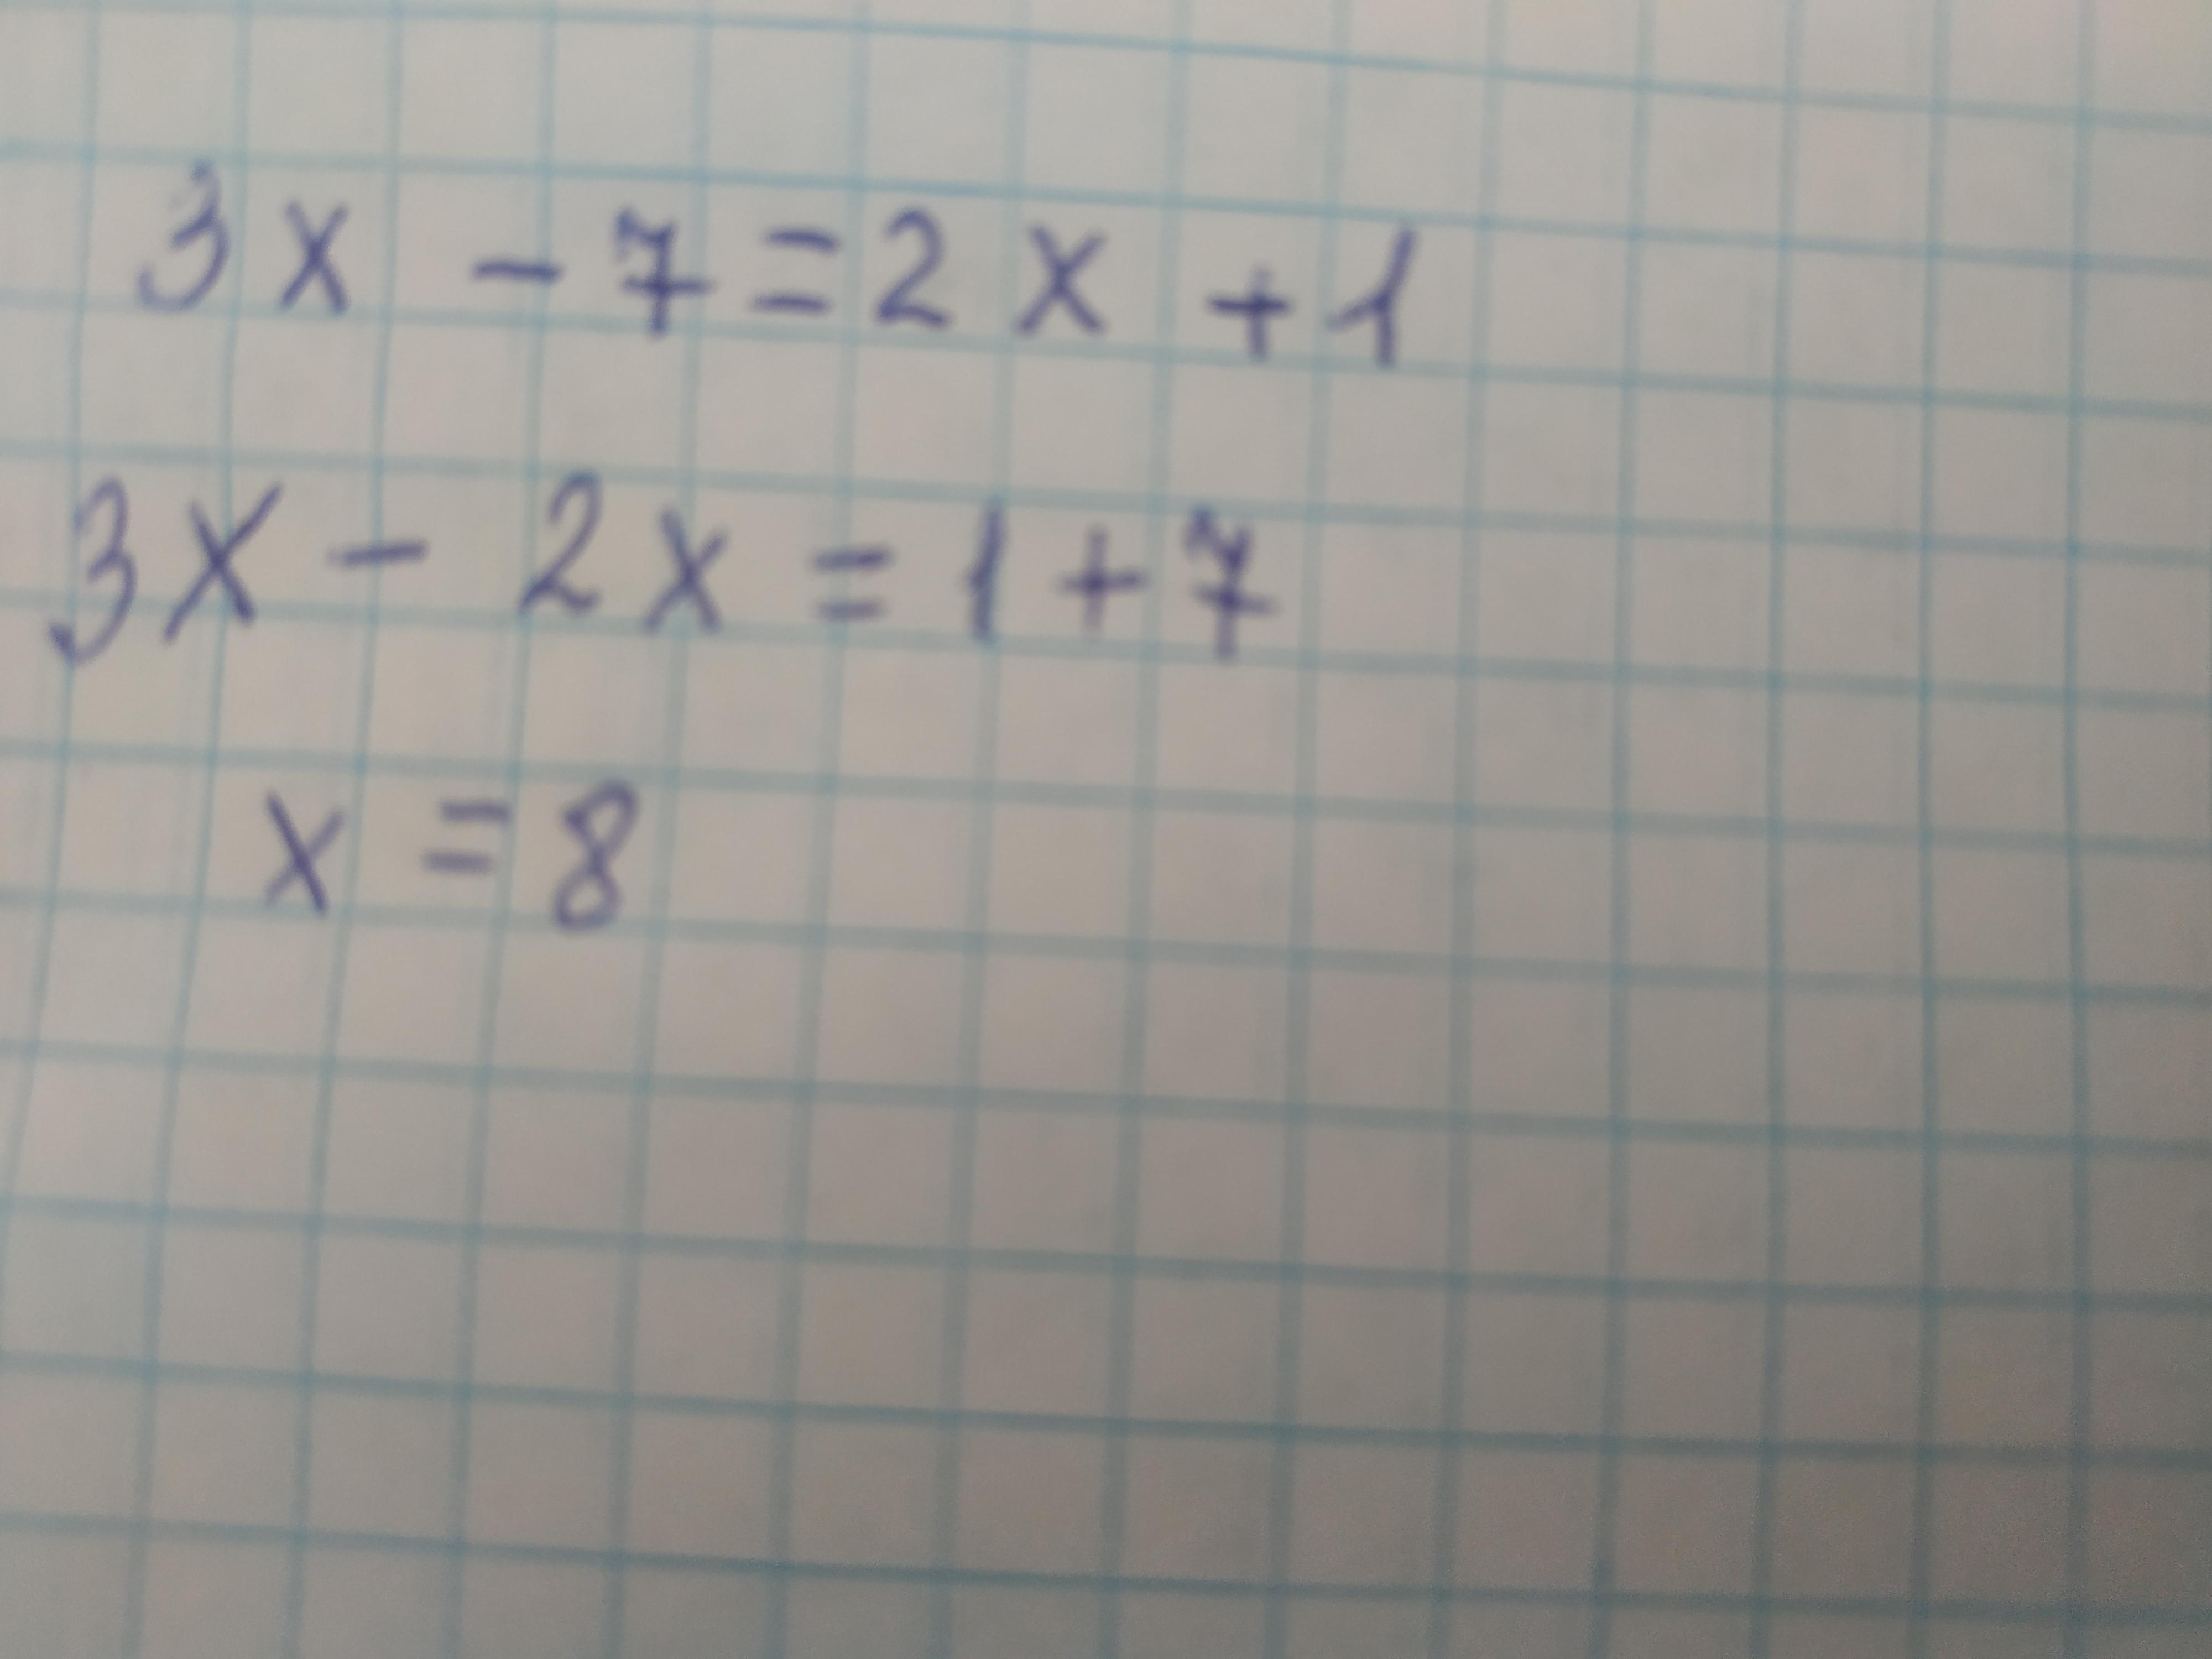 3x - 7 = 2x + 1
3x - 2x = 1 + 7
x = 8